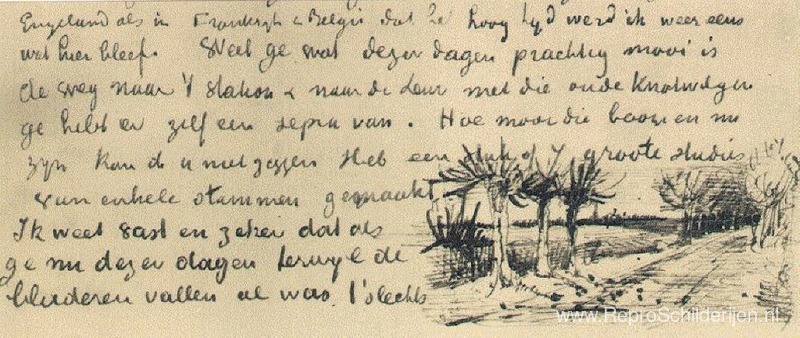 Engeland als in Frankrijk & Belgie dat het hoog tyd werd ik weer eens
wat hier bleef. Weet ge wat dezer dagen prachtig mooi is
de weg naar 't station & naar de Leur met die oude Knotwilgen
ge hebt er zelf een sepia van. Hoe mooi die boomen nu
zyn kan ik u niet zeggen Heb een stuk of 7 groote studies
van enkele stammen gemaakt
Ik weet vast en zeker dat als
ge nu dezer dagen terwyl de
bladeren vallen al was 't slechts
www.ReproSchilderijen.nl